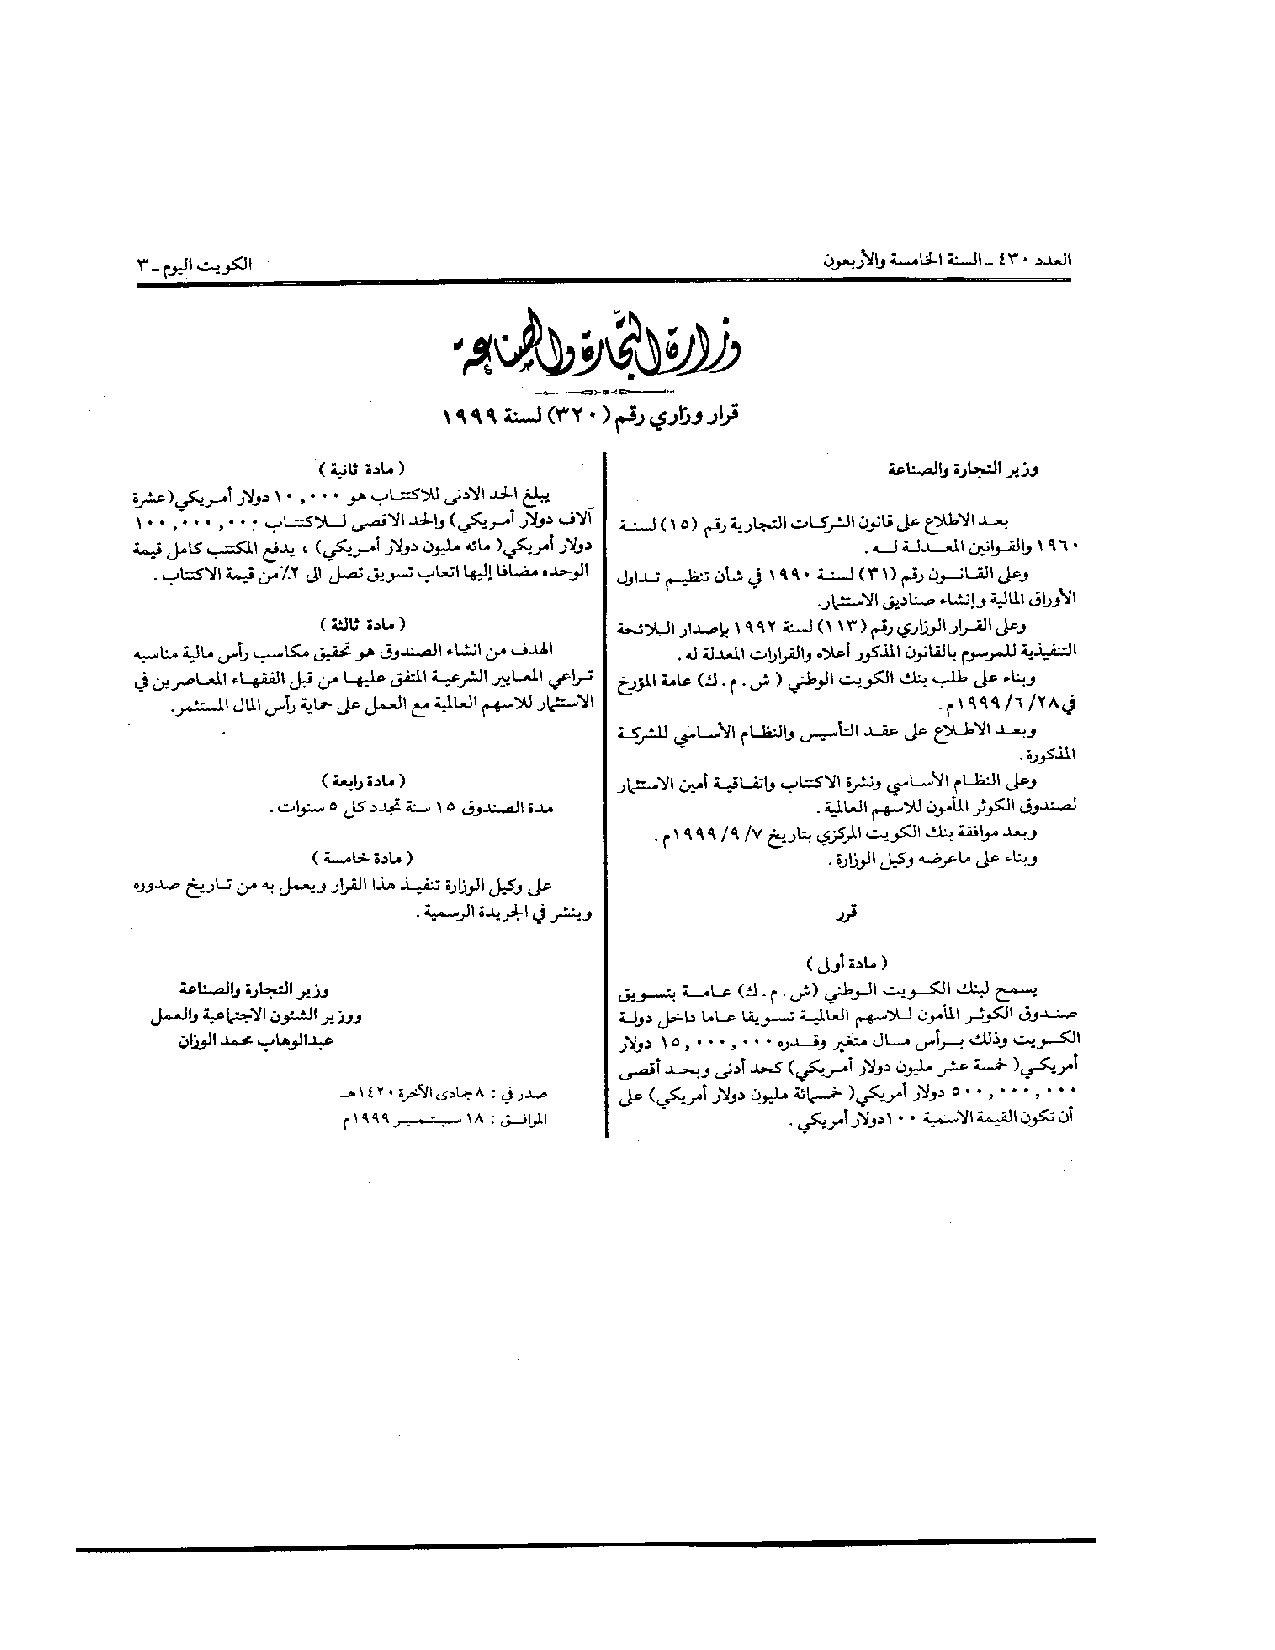 العدد ٤٣٠ - السنة الخامسة والأربعون
الكويت اليوم - ٣
وزارة التجارة والصناعة
قرار وزاري رقم (٣٢٠) لسنة ١٩٩٩
وزير التجارة والصناعة
بعد الاطلاع على قانون الشركات التجارية رقم (١٥) لسنة
١٩٦٠ والقوانين المعدلة له .
وعلى القانون رقم (٣١) لسنة ١٩٩٠ في شأن تنظيم تداول
الأوراق المالية وإنشاء صناديق الاستثمار.
وعلى القرار الوزاري رقم (١١٣) لسنة ١٩٩٢ بإصدار اللائحة
التنفيذية للمرسوم بالقانون المذكور أعلاه والقرارات المعدلة له .
وبناء على طلب بنك الكويت الوطني ( ش . م . ك) عامة المؤرخ
في ٢٨/ ٦/ ١٩٩٩م .
وبعد الاطلاع على عقد التأسيس والنظام الأساسي للشركة
المذكورة .
وعلى النظام الأساسي ونشرة الاكتتاب واتفاقية أمين الاستثمار
لصندوق الكوثر المأمون للاسهم العالمية .
وبعد موافقة بنك الكويت المركزي بتاريخ ٧/ ٩/ ١٩٩٩م .
وبناء على ماعرضه وكيل الوزارة .
قرر
( مادة أولى )
يسمح لبنك الكويت الوطني (ش . م . ك) عامة بتسويق
صندوق الكوثر المأمون للاسهم العالمية تسويقا عاما داخل دولة
الكويت وذلك برأس مال متغير وقدره ١٥,٠٠٠,٠٠٠ دولار
أمريكي( خمسة عشر مليون دولار أمريكي) كحد أدنى وبحد أقصى
٥٠٠,٠٠٠,٠٠٠ دولار أمريكي( خمسمائة مليون دولار أمريكي) على
أن تكون القيمة الاسمية ١٠٠ دولار أمريكي .
( مادة ثانية )
يبلغ الحد الادنى للاكتتاب هو ١٠,٠٠٠ دولار أمريكي(عشرة
آلاف دولار أمريكي) والحد الاقصى للاكتتاب ١٠٠,٠٠٠,٠٠٠
دولار أمريكي( مائه مليون دولار أمريكي) ، يدفع المكتتب كامل قيمة
الوحده مضافا إليها اتعاب تسويق تصل الى ٢٪ من قيمة الاكتتاب .
( مادة ثالثة )
الهدف من انشاء الصندوق هو تحقيق مكاسب رأس مالية مناسبه
تراعي المعايير الشرعية المتفق عليها من قبل الفقهاء المعاصرين في
الاستثمار للاسهم العالمية مع العمل على حماية رأس المال المستثمر.
( مادة رابعة )
مدة الصندوق ١٥ سنة تجدد كل ٥ سنوات .
( مادة خامسة )
على وكيل الوزارة تنفيذ هذا القرار ويعمل به من تاريخ صدوره
وينشر في الجريدة الرسمية .
وزير التجارة والصناعة
ووزير الشئون الاجتماعية والعمل
عبدالوهاب محمد الوزان
صدر في : ٨ جمادى الآخرة ١٤٢٠هـ
الموافق : ١٨ سبتمبر ١٩٩٩م